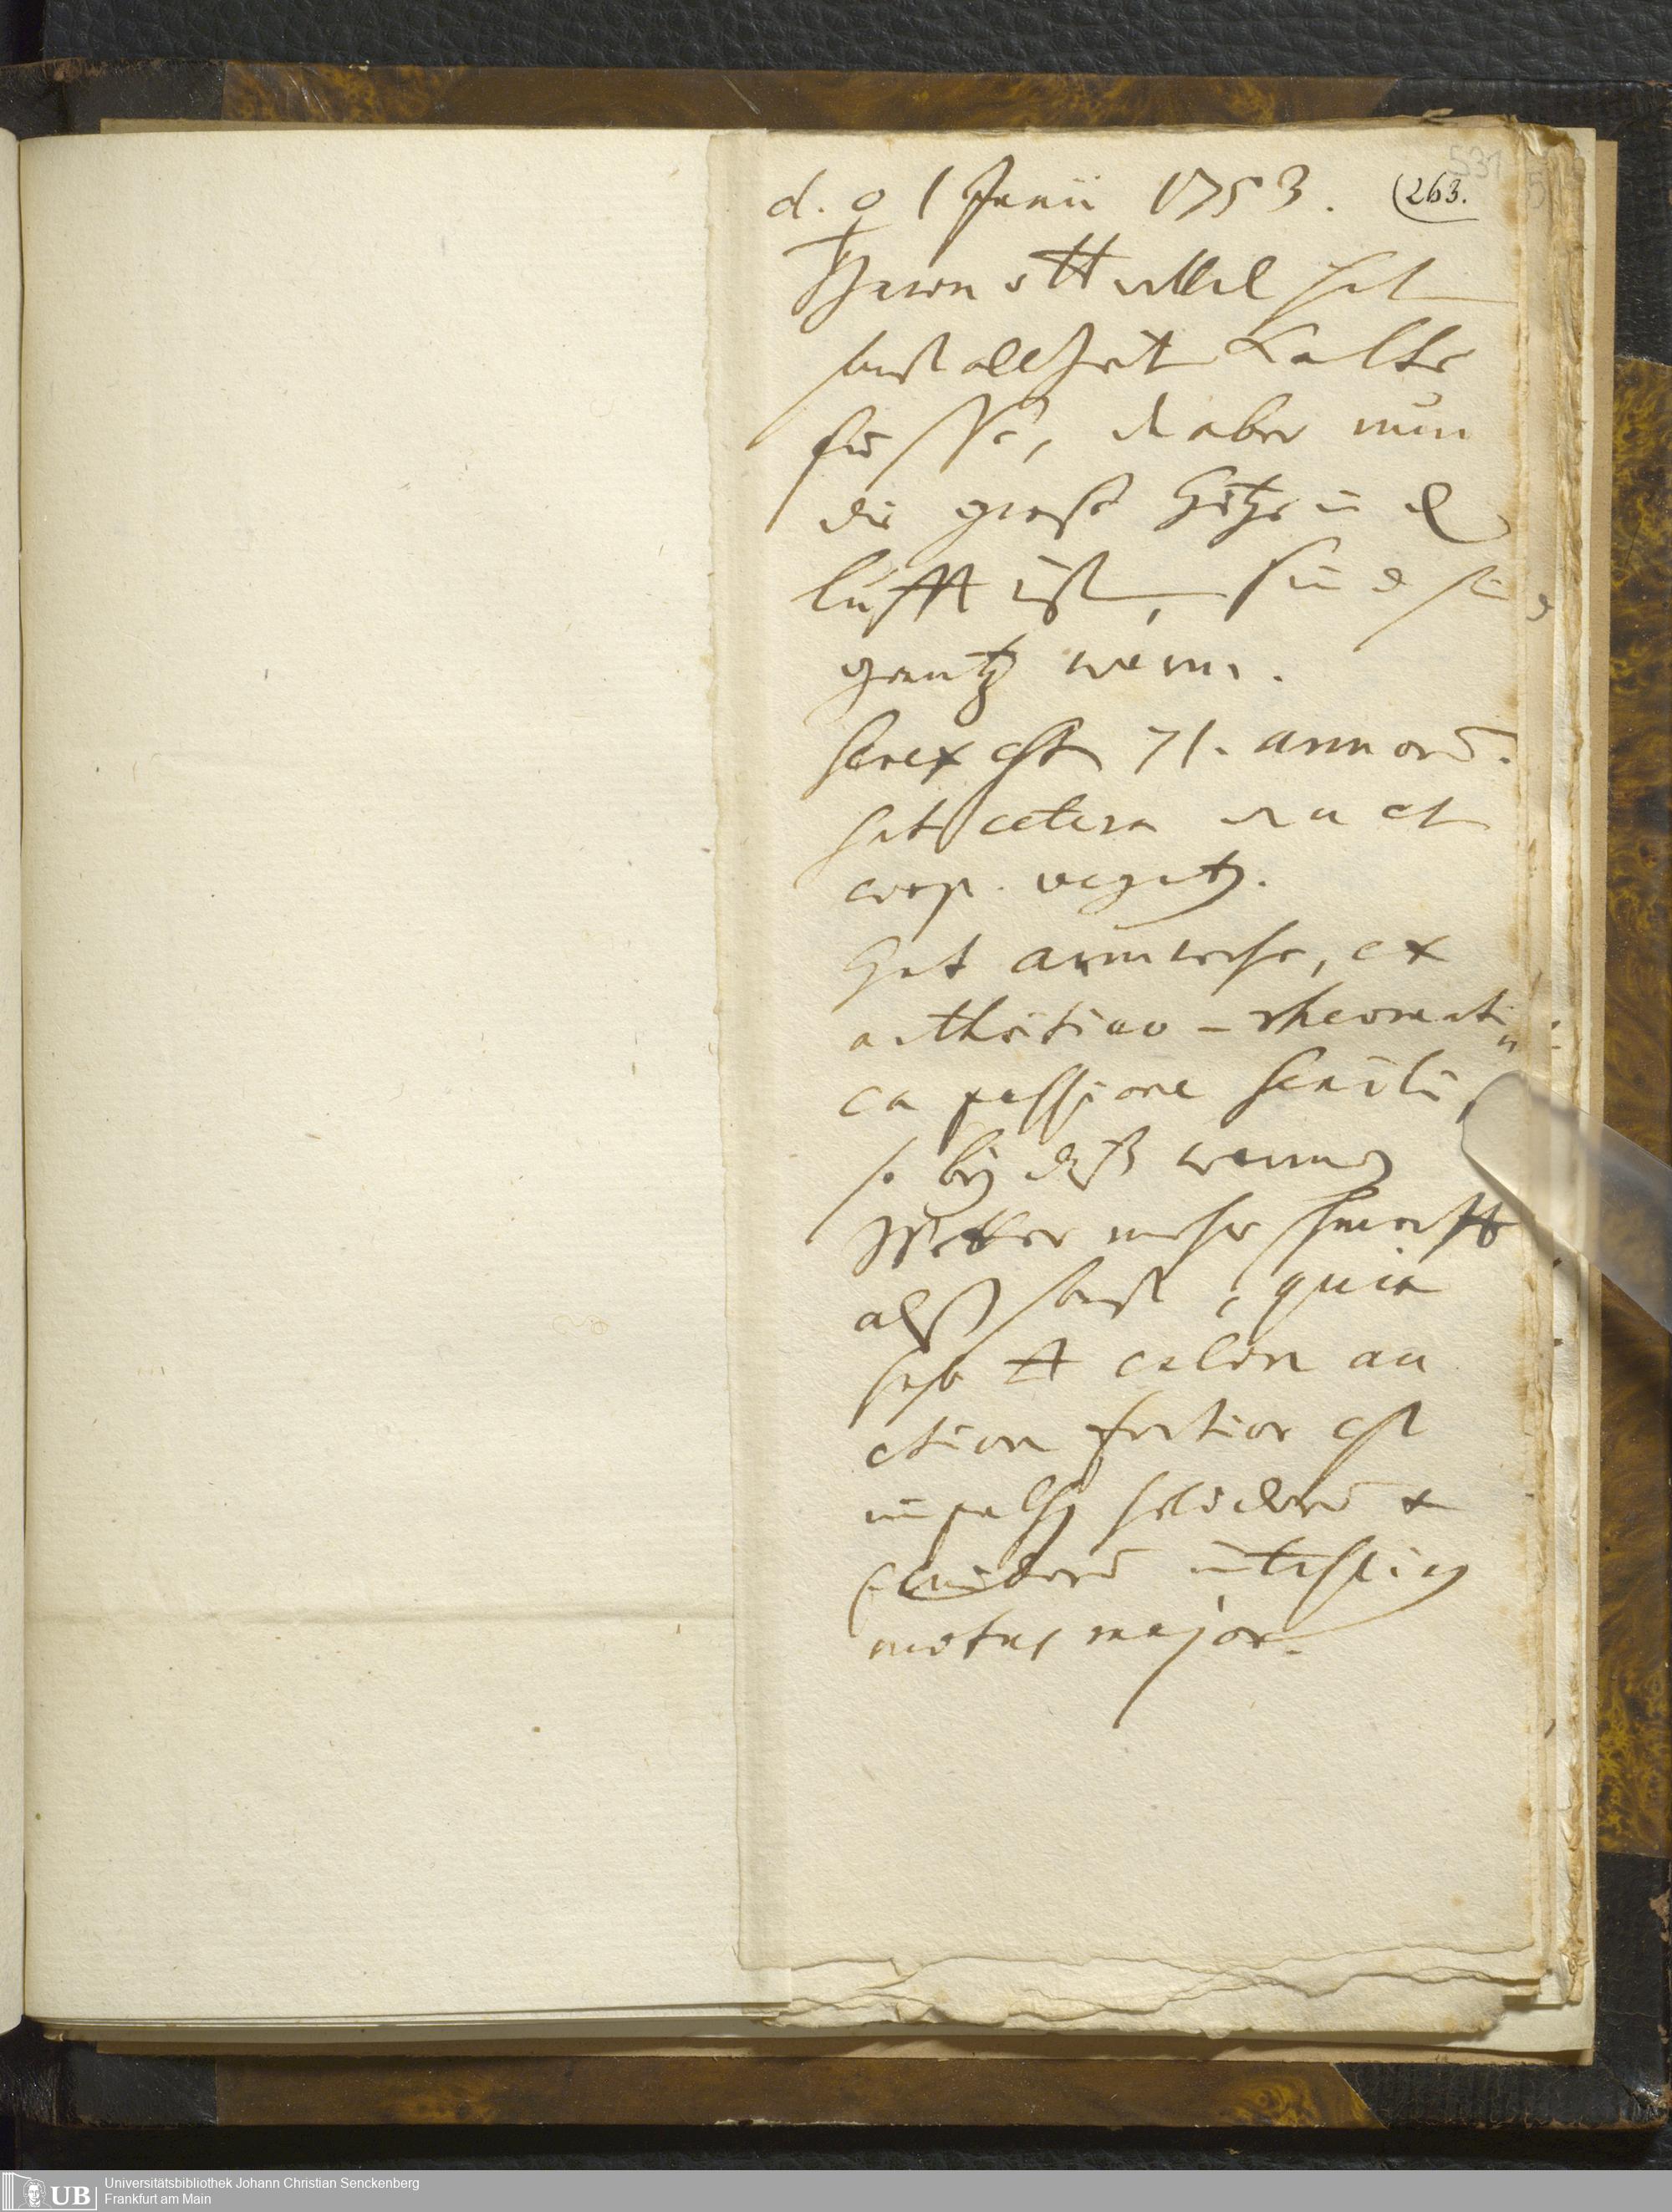 531
d. ♀ 1 Junii 1753. (263.
hat
sonst allzeit kalte
füsse, da aber nun
die große Hitze in d
lufft ist, sind sie
gantz warm.
Senex est 71. annorū.
hat cetera
corp. veget9.
Hat armwehe, ex
arthritico-rheumati„
ca passione senili
so bey dießer warmen
Wetter mehr schmertzt
als sonst, quia
calore au
ctiore fortior est
impuls9 solidorū &
fluidorū intestin9
motus major.
UB Universitätsbibliothek Johann Christian Senckenberg
Frankfurt am Main